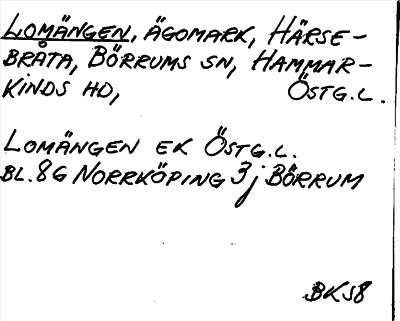 LOMÄNGEN, ÄGOMARK, HÄRSE-
BRÅTA, BÖRRUMS SN, HAMMAR-
KINDS HD, ÖSTG.L.
LOMÄNGEN EK ÖSTG.L.
BL. 8G NORRKÖPING 3j BÖRRUM
BKS8